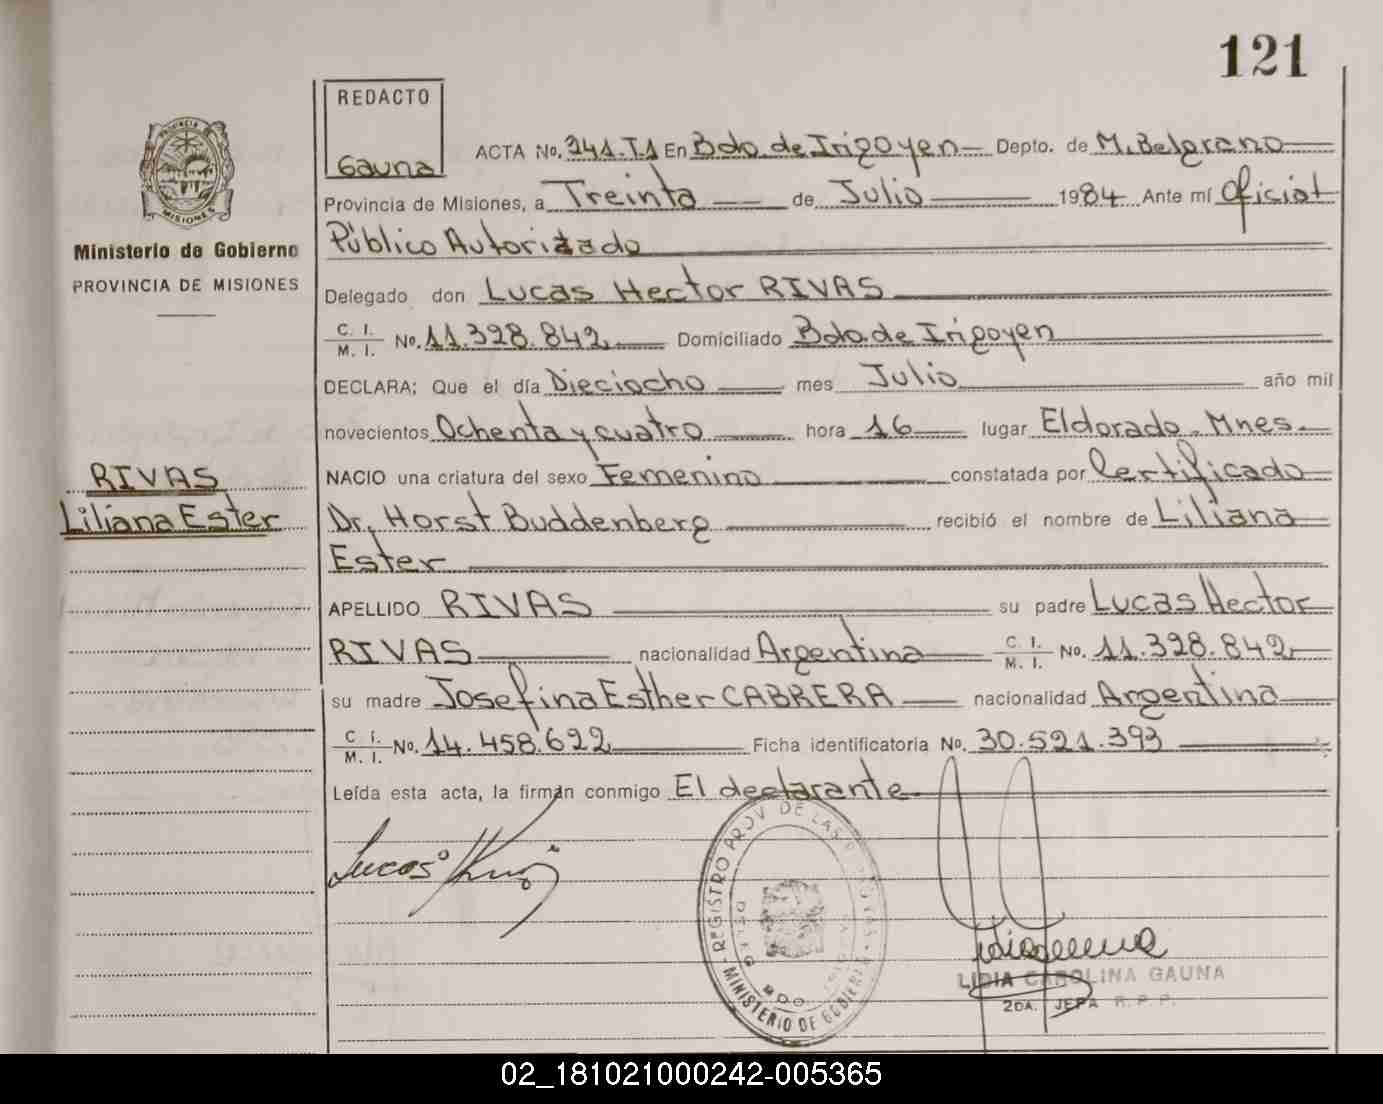 121
REDACTO
Gauna
PROVINCIA
MISIONES
Ministerio de Gobierno
PROVINCIA DE MISIONES
ACTA No. 241.T.1 En Bdo. de Irigoyen Depto. de M. Belgrano
Provincia de Misiones, a Treinta de Julio 1984 Ante mí Oficial
Público Autorizado
Delegado don Lucas Hector RIVAS
C. I. / M. I. No. 11.328.842 Domiciliado Bdo. de Irigoyen
DECLARA; Que el día Dieciocho mes Julio año mil
novecientos Ochenta y cuatro hora 16 lugar Eldorado - Mnes.
NACIO una criatura del sexo Femenino constatada por Certificado
Dr. Horst Buddenberg recibió el nombre de Liliana
Ester
APELLIDO RIVAS su padre Lucas Hector
RIVAS nacionalidad Argentina C. I. / M. I. No. 11.328.842
su madre Josefina Esther CABRERA nacionalidad Argentina
C. I. / M. I. No. 14.458.622 Ficha identificatoria No. 30.521.393
Leída esta acta, la firman conmigo El declarante
RIVAS
Liliana Ester
Lucas
REGISTRO PROV. DE LAS
MINISTERIO DE GOBIERNO
BDO.
LIDIA CAROLINA GAUNA
2DA. JEFA R. P. P.
02_181021000242-005365